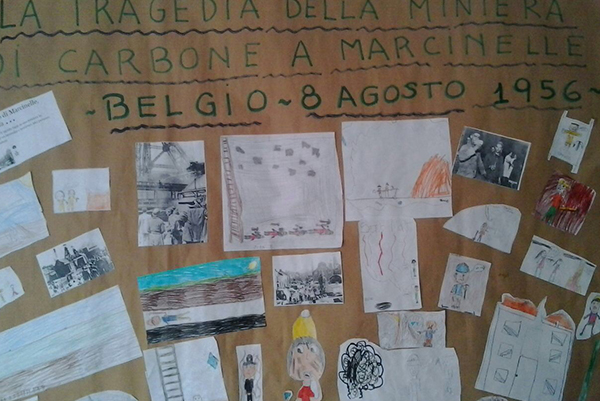 LA TRAGEDIA DELLA MINIERA
DI CARBONE A MARCINELLE
~BELGIO~8 AGOSTO 1956~
di Marcinelle